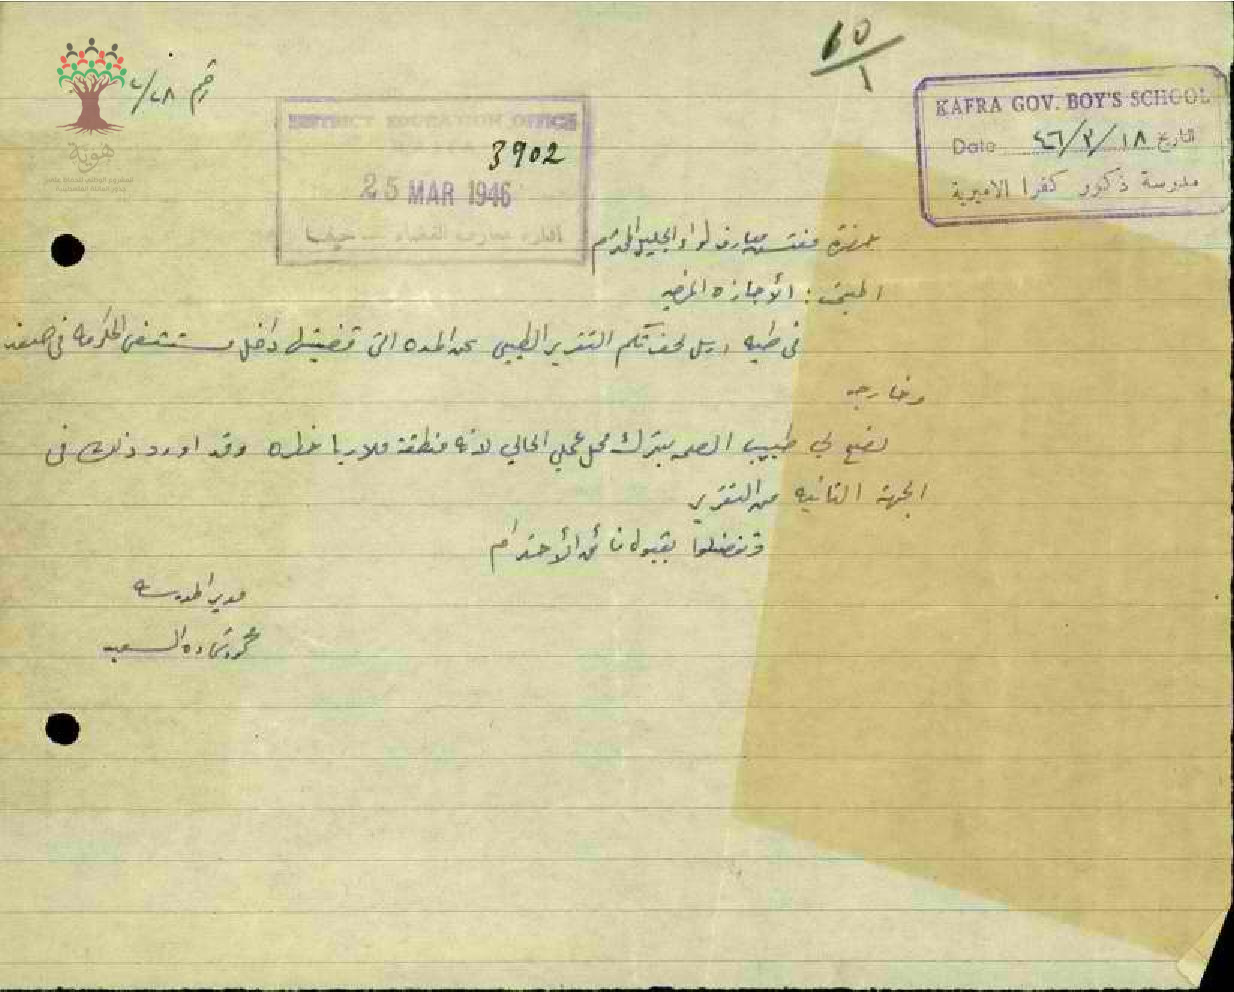 60
1
رقم ٢/٢٨
KAFRA GOV. BOY'S SCHOOL
Date ٤٦/٣/١٨ التاريخ
مدرسة ذكور كفرا الاميرية
DISTRICT EDUCATION OFFICE
3902
25 MAR 1946
ادارة معارف القضاء - حيفا
هوية
حضرة مفتش معارف لواء الجليل المحترم
المبحث : الأجازه المرضيه
في طيه ارسل لحضرتكم التقرير الطبي عن المده التي قضيتها داخل مستشفى الحكومة في صفد
وخارجه
نصح لي طبيب الصحه بترك محل عملي الحالي لانه منطقة ملاريا خطره وقد اورد ذلك في
الجهة الثانيه من التقرير
وتفضلوا بقبول فائق الأحترام
مدير المدرسه
السعيد